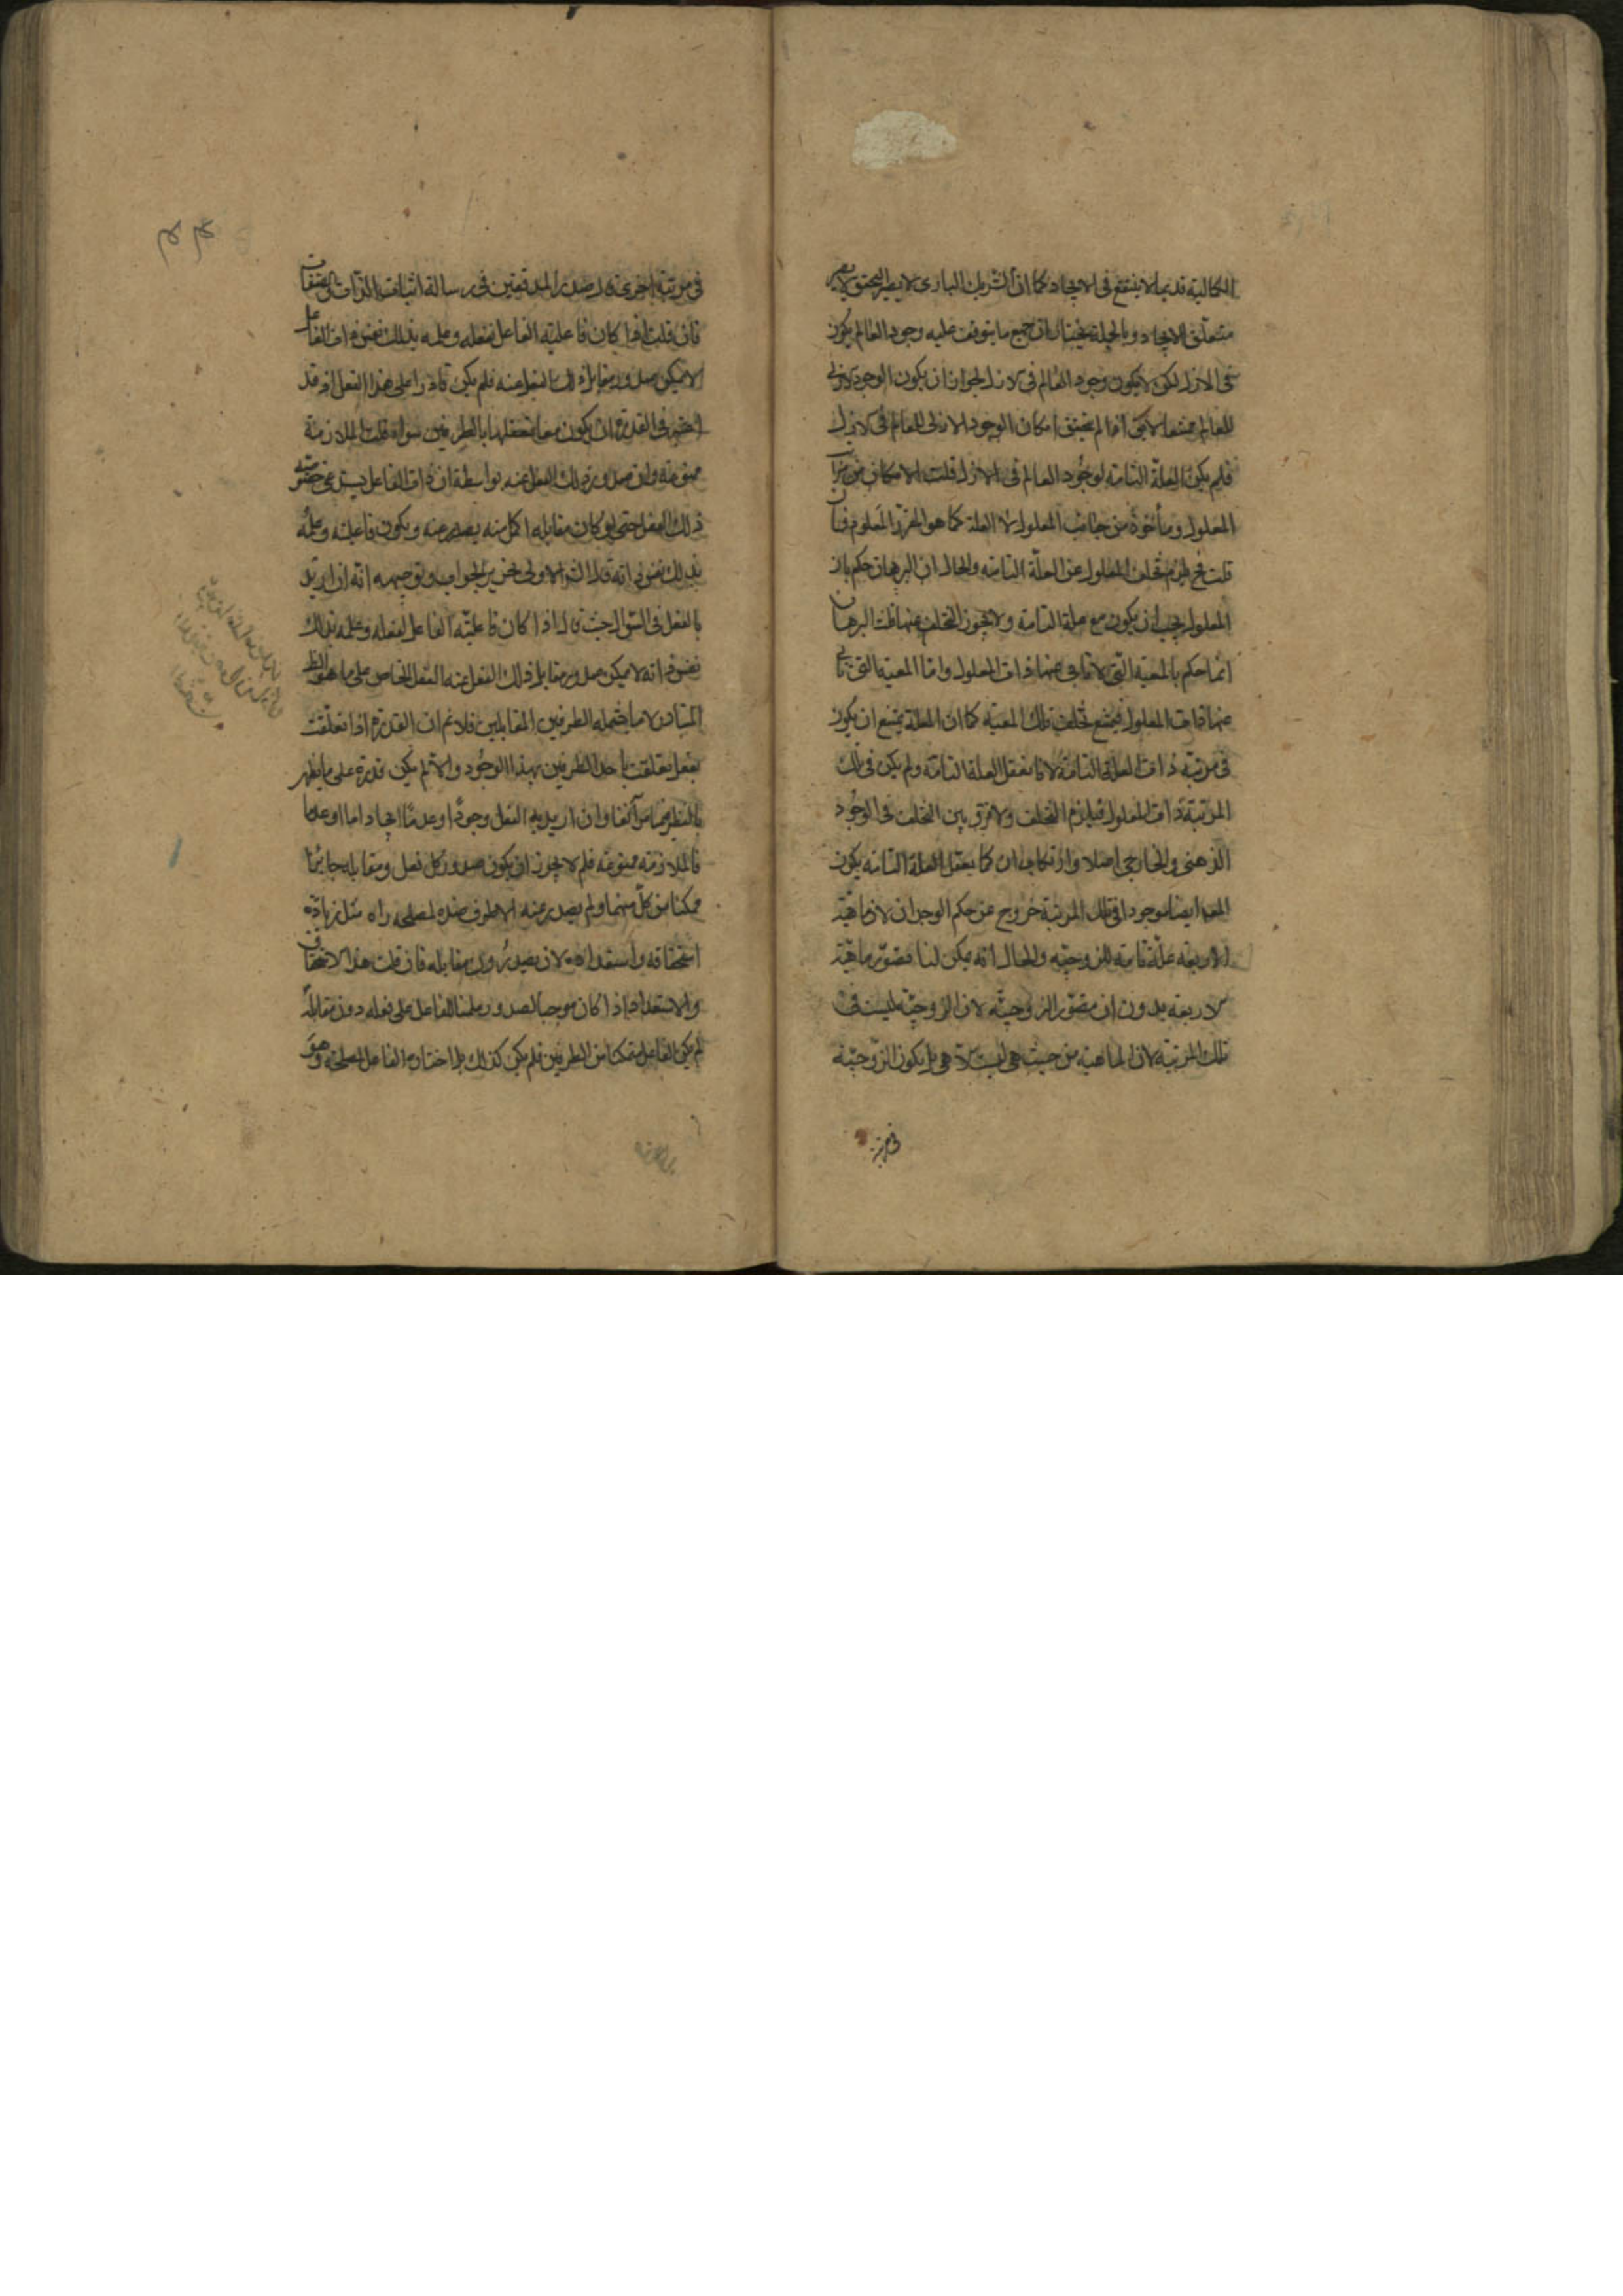 الكمالية قديما لا ينفع في الايجاد كما ان الشريك الباري لا يصير
متعلق الايجاد وبالجملة نختار ان جميع ما يتوقف عليه وجود العالم يكون
في الازل لكن لا يكون وجود العالم في الازل لجواز ان يكون الوجود الازلي
للعالم ممتنعا لا يق اذا لم يتحقق امكان الوجود الازلي للعالم في الازل
فلم يكن العلة التامة لوجود العالم في الازل قلت الامكان من مراتب
المعلول ومأخوذة من جانب المعلول لا العلة كما هو المقرر المعلوم فان
قلت فح يلزم تخلف المعلول عن العلة التامة والحال ان البرهان حكم بان
المعلول يجب ان يكون مع علة التامة ولا يجوز التخلف عنها قلت البرهان
انما حكم بالمعية التي لا تابى عنها ذات المعلول واما المعية التي تابى
عنها ذات المعلول فيمتنع تخلف تلك المعية كما ان العلة يمتنع ان يكون
في مرتبة ذات العلة التامة لانا نعقل العلة التامة ولم يكن في تلك
المرتبة ذات المعلول فيلزم التخلف ولا فرق بين التخلف في الوجود
الذهني والخارجي اصلا وارتكاب ان كما يعقل العلة التامة يكون
المعه ايضا موجودا في تلك المرتبة خروج عن حكم الوجدان لان ماهية
الاربعة علة تامة للزوجية والحال انه يمكن لنا تصور ماهية
الاربعة بدون ان نتصور الزوجية لان الزوجية ليست في
تلك المرتبة لان الماهية من حيث هي ليست الا هي بل يكون الزوجية
في مرتبة
في مرتبة اخرى قال صدر المدققين في رسالة اثبات الذات والصفات
فان قلت اذا كان فاعلية الفاعل لفعله وعلمه بذلك نفس ذات الفاعل
لا يمكن صدور مقابل ذلك الفعل عنه فلم يكن قادرا على هذا الفعل اذ قد
اعتبر في القدرة ان يكون معا تعلقها بالطرفين سواء قلت الملازمة
ممنوعة وان صدور ذلك الفعل عنه بواسطة ان ذات الفاعل يستدعي خصوصية
ذلك الفعل حتى لو كان مقابله اكمل منه يصدر عنه ويكون فاعليته وعلمه
بذلك نفس ذاته قال الاولى تحرير الجواب وتوجيهه انه ان اريد
بالفعل في السؤال حيث قال اذا كان فاعلية الفاعل لفعله وعلمه بذلك
نفس ذاته لا يمكن صدور مقابل ذلك الفعل عنه الفعل الخاص على ما هو الظ
المتبادر لا ما يشمله الطرفين المقابلين فلا نم ان القدرة اذا تعلقت
بفعل تعلقت باحد الطرفين بهذا الوجود والا لم يكن قدرة على ما يظهر
بالنظر فيما مر آنفا وان اريد به الفعل وجودا وعدما ايجادا او اعداما
فالملازمة ممنوعة فلم لا يجوز ان يكون صدور كل فعل ومقابله جائزا
ممكنا من كل منهما ولم يصدر عنه الا طرف منه لمصلحة راه مثل زيادة
استحقاقه واستعداده لان يصدر دون مقابله فان قلت هذا الاستحقاق
والاستعداد اذا كان موجبا لصدور علمنا الفاعل على فعله دون مقابله
لم يكن الفاعل متمكنا من الطرفين فلم يكن كذلك بل اختاره الفاعل لمصلحة وهو